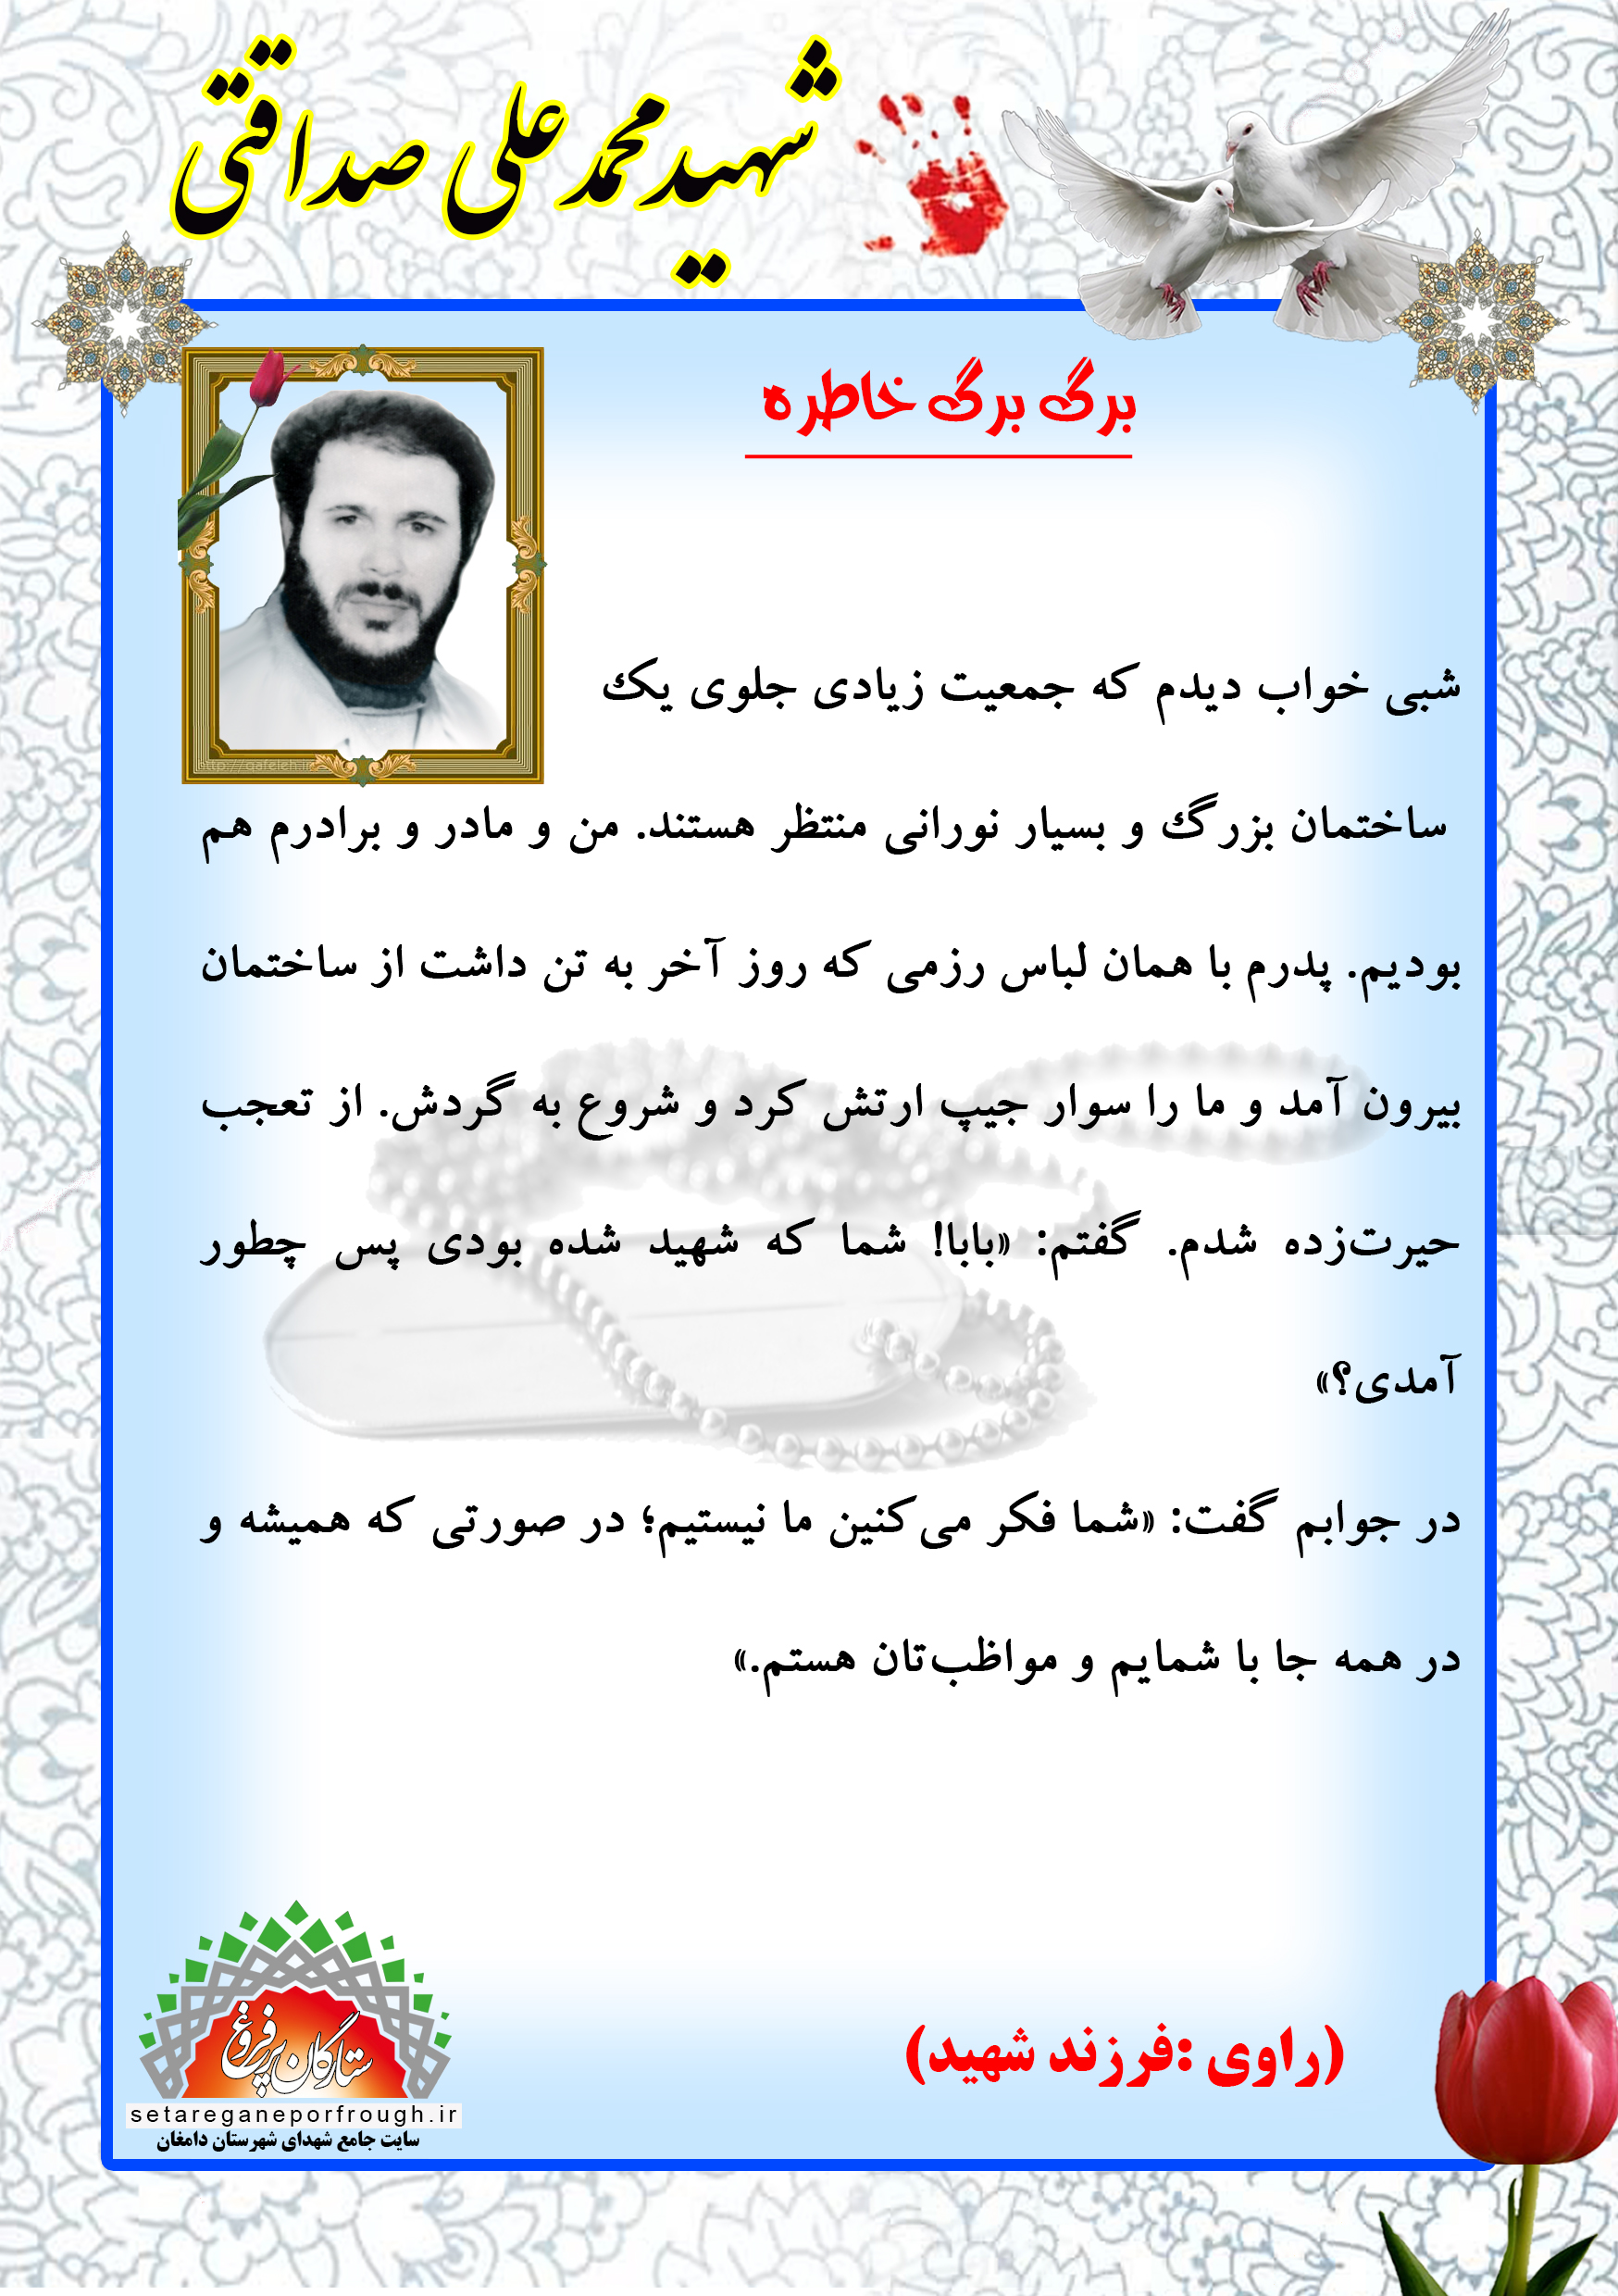 شهید محمد علی صداقتی
برگ برگ خاطره
شبی خواب دیدم که جمعیت زیادی جلوی یک
ساختمان بزرگ و بسیار نورانی منتظر هستند. من و مادر و برادرم هم
بودیم. پدرم با همان لباس رزمی که روز آخر به تن داشت از ساختمان
بیرون آمد و ما را سوار جیپ ارتش کرد و شروع به گردش. از تعجب
حیرت‌زده شدم. گفتم: «بابا! شما که شهید شده بودی پس چطور
آمدی؟»
در جوابم گفت: «شما فکر می‌کنین ما نیستیم؛ در صورتی که همیشه و
در همه جا با شمایم و مواظب‌تان هستم.»
(راوی :فرزند شهید)
ستارگان پرفروغ
setareganeporfrough.ir
سایت جامع شهدای شهرستان دامغان
http://qafeleh.ir